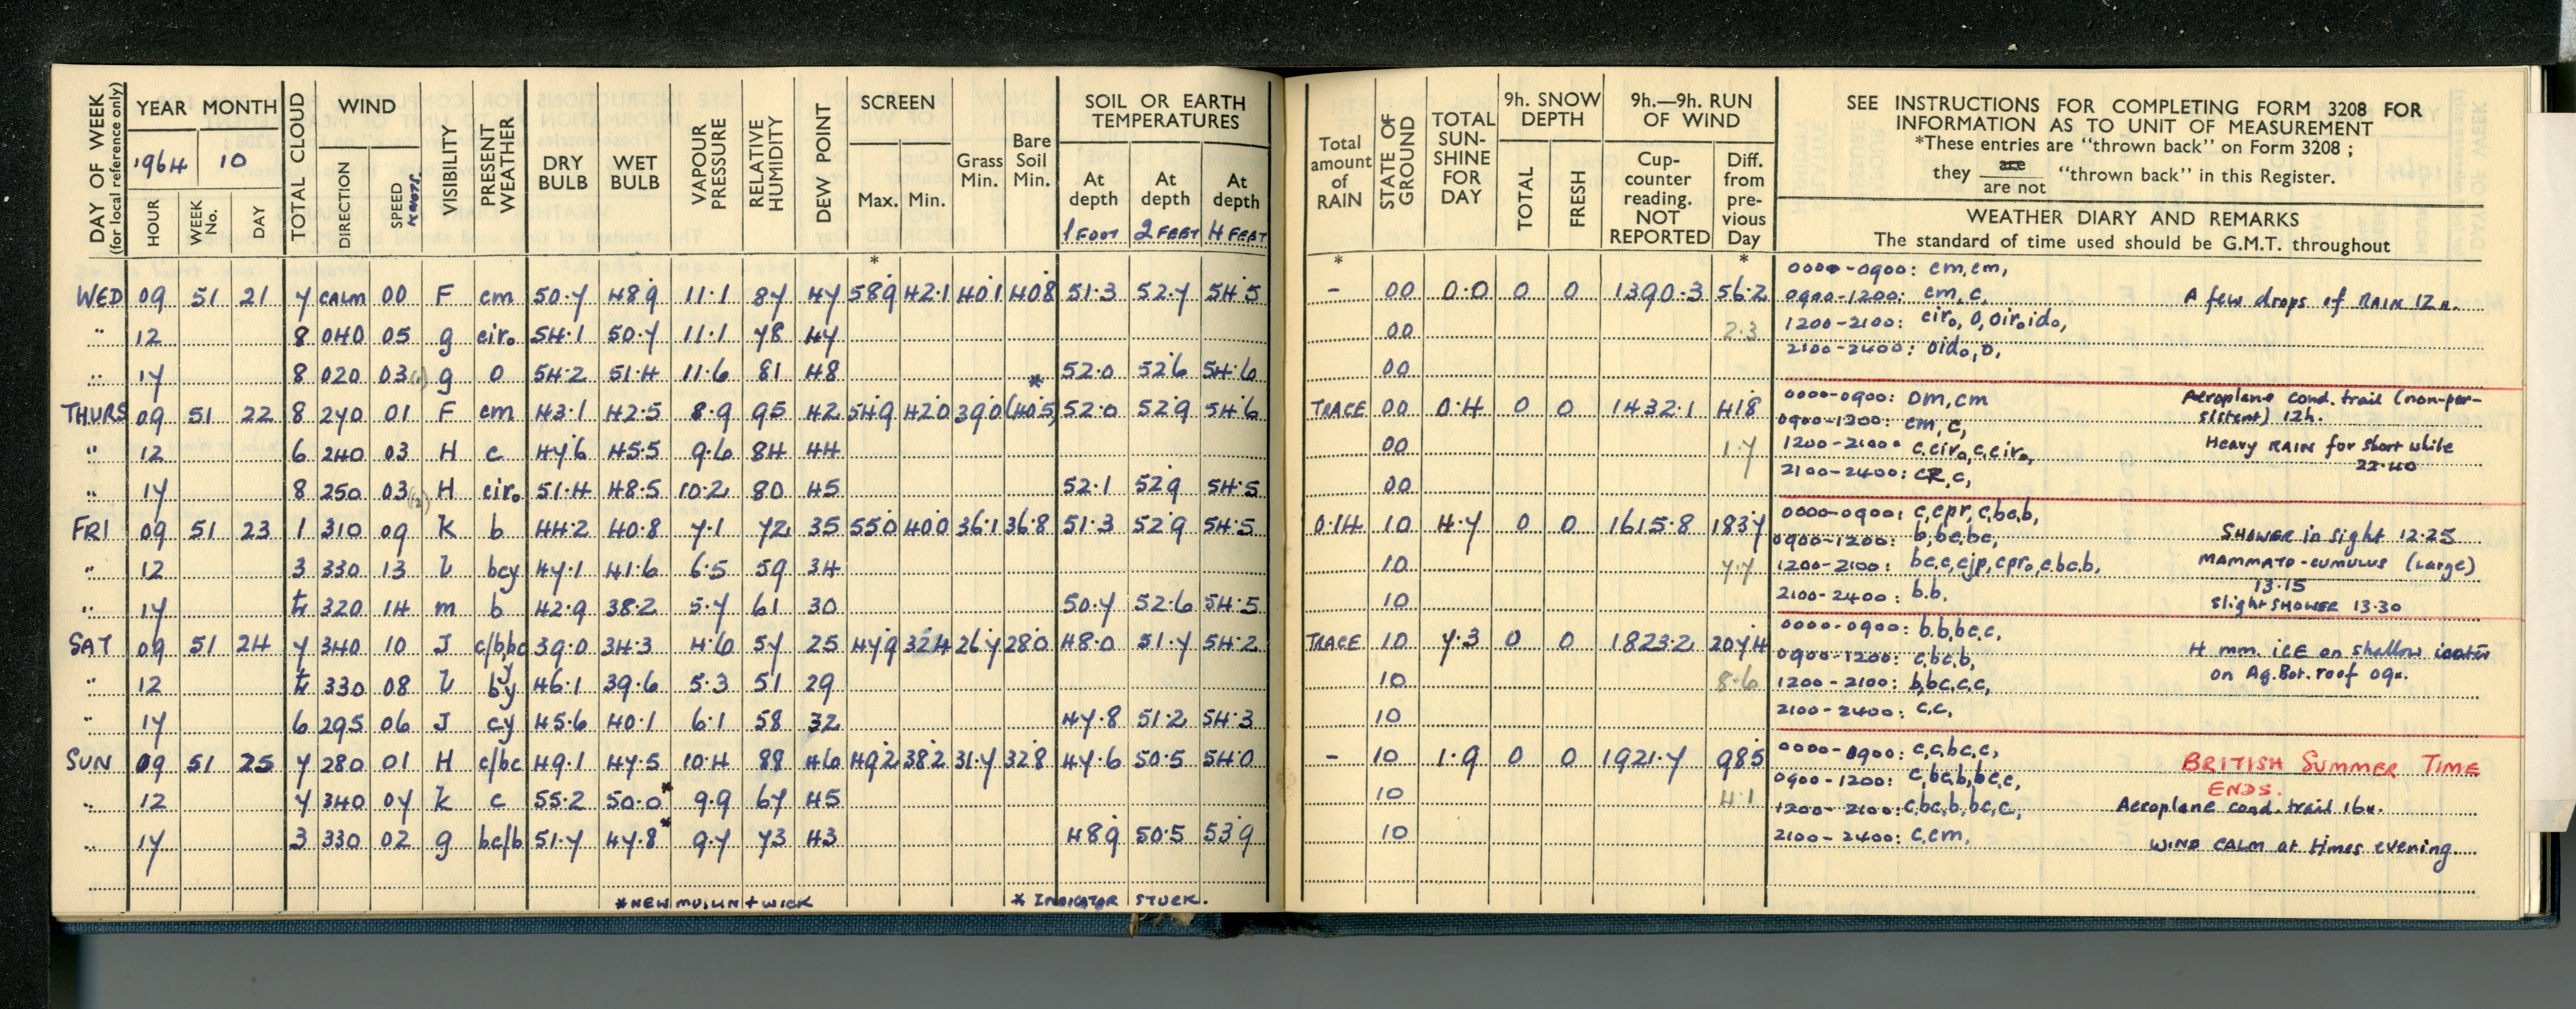 DAY OF WEEK (for local reference only) YEAR MONTH TOTAL CLOUD WIND VISIBILITY PRESENT WEATHER DRY BULB WET BULB VAPOUR PRESSURE RELATIVE HUMIDITY DEW POINT SCREEN Grass Min. Bare Soil Min. SOIL OR EARTH TEMPERATURES
1964 10
HOUR WEEK No. DAY DIRECTION SPEED KNOTS. Max. Min. At depth At depth At depth
1 FOOT 2 FEET 4 FEET
*
WED 09 51 21 7 CALM 00 F cm 50.7 48.9 11.1 87 47 58.9 42.1 40.1 40.8 51.3 52.7 54.5
" 12 8 040 05 g cir₀ 54.1 50.7 11.1 78 47
" 17 8 020 03 g o 54.2 51.4 11.6 81 48 * 52.0 52.6 54.6
THURS 09 51 22 8 270 01 F cm 43.1 42.5 8.9 95 42 54.9 42.0 39.0 (40.5) 52.0 52.9 54.6
" 12 6 240 03 H c 47.6 45.5 9.6 84 44
" 17 8 250 03 H cir₀ 51.4 48.5 10.2 80 45 52.1 52.9 54.5
FRI 09 51 23 1 310 09 K b 44.2 40.8 7.1 72 35 55.0 40.0 36.1 36.8 51.3 52.9 54.5
" 12 3 330 13 L bcy 47.1 41.6 6.5 59 34
" 17 tr 320 14 m b 42.9 38.2 5.7 61 30 50.7 52.6 54.5
SAT 09 51 24 7 340 10 J c/bbc 39.0 34.3 4.6 57 25 47.9 32.4 26.7 28.0 48.0 51.7 54.2
" 12 tr 330 08 L by 46.1 39.6 5.3 51 29
" 17 6 295 06 J cy 45.6 40.1 6.1 58 32 47.8 51.2 54.3
SUN 09 51 25 7 280 01 H c/bc 49.1 47.5 10.4 88 46 49.2 38.2 31.7 32.8 47.6 50.5 54.0
" 12 7 340 07 K c 55.2 50.0* 9.9 67 45
" 17 3 330 02 g bc/b 51.7 47.8* 9.7 73 43 48.9 50.5 53.9
* NEW MUSLIN + WICK * INDICATOR STUCK.
Total amount of RAIN STATE OF GROUND TOTAL SUN-SHINE FOR DAY 9h. SNOW DEPTH 9h.—9h. RUN OF WIND
TOTAL FRESH Cup-counter reading. NOT REPORTED Diff. from pre-vious Day
* *
SEE INSTRUCTIONS FOR COMPLETING FORM 3208 FOR
INFORMATION AS TO UNIT OF MEASUREMENT
*These entries are "thrown back" on Form 3208 ;
they are / are not "thrown back" in this Register.
WEATHER DIARY AND REMARKS
The standard of time used should be G.M.T. throughout
- 00 0.0 0 0 1390.3 56.2
00 2.3
00
TRACE 00 0.4 0 0 1432.1 41.8
00 1.7
00
0.14 10 4.7 0 0 1615.8 183.7
10 7.7
10
TRACE 10 7.3 0 0 1823.2 207.4
10 8.6
10
- 10 1.9 0 0 1921.7 98.5
10 4.1
10
0000-0900: cm, cm,
0900-1200: cm, c, A few drops of RAIN 12h.
1200-2100: cir₀, o, oir₀id₀,
2100-2400: oid₀, o,
0000-0900: om, cm Aeroplane cond. trail (non-per-
sistent) 12h.
0900-1200: cm, c,
1200-2100: c, cir₀, c, cir₀, Heavy RAIN for short while
22.40
2100-2400: cR, c,
0000-0900: c, cpr, c, bc, b,
0900-1200: b, bc, bc, SHOWER in sight 12.25
1200-2100: bc, c, cjp, cpr₀, c, bc, b, MAMMATO-CUMULUS (Large)
13.15
2100-2400: b. b, slight SHOWER 13.30
0000-0900: b, b, bc, c,
0900-1200: c, bc, b, 4 mm. ICE on shallow water
1200-2100: b, bc, c, c, on Ag. Bot. roof 09h.
2100-2400: c, c,
0000-0900: c, c, bc, c, BRITISH SUMMER TIME
0900-1200: c, bc, b, bc, c, ENDS.
1200-2100: c, bc, b, bc, c, Aeroplane cond. trail 16h.
2100-2400: c, cm, WIND CALM at times evening